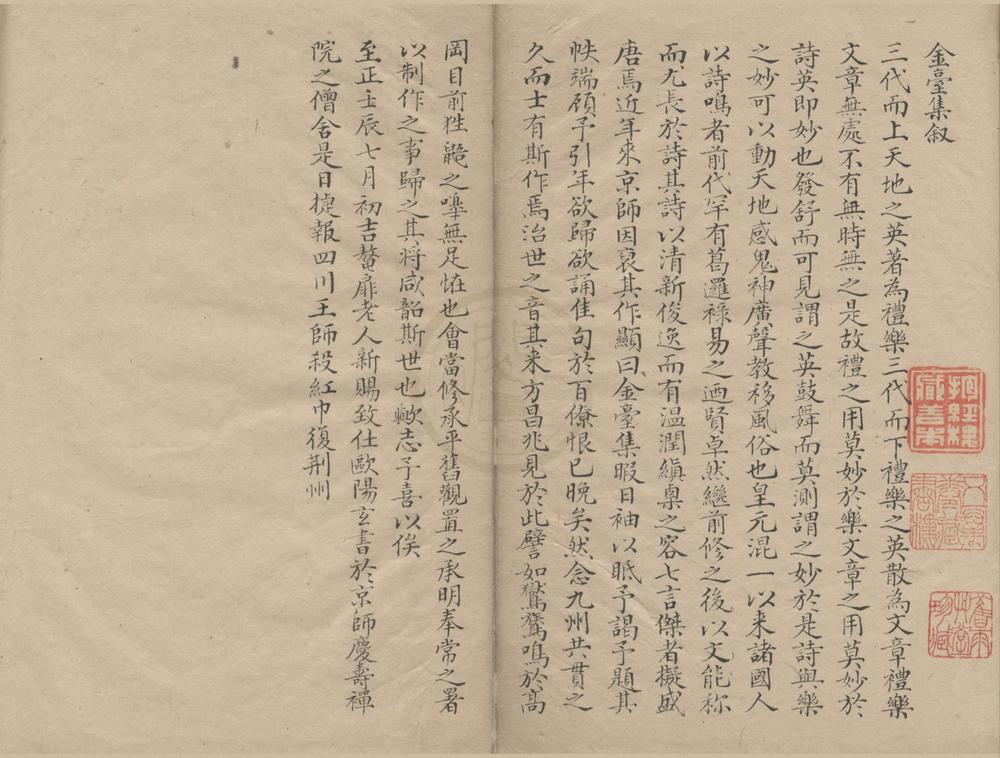 金臺集叙
三代而上天地之英著為禮樂三代而下禮樂之英散為文章禮樂
文章無處不有無時無之是故禮之用莫妙於樂文章之用莫妙於
詩英即妙也發舒而可見謂之英鼓舞而莫測謂之妙於是詩與樂
之妙可以動天地感鬼神廣聲教移風俗也皇元混一以来諸國人
以詩鳴者前代罕有葛邏禄易之迺賢卓然繼前修之後以文能称
而尤長於詩其詩以清新俊逸而有温潤縝栗之容七言傑者擬盛
唐焉近年來京師因裒其作顯曰金臺集暇日袖以眎予謁予題其
帙端顧予引年欲歸欲誦佳句於百僚恨已晚矣然念九州共貫之
久而士有斯作焉治世之音其来方昌兆見於此譬如鸑鷟鳴於高
岡目前狌鼯之嘷無足恠也會當修承平舊觀置之承明奉常之署
以制作之事歸之其将咸韶斯世也歟志予喜以俟
至正壬辰七月初吉鼇扉老人新賜致仕歐陽玄書於京師慶壽禪
院之僧舍是日捷報四川王師殺紅巾復荆州